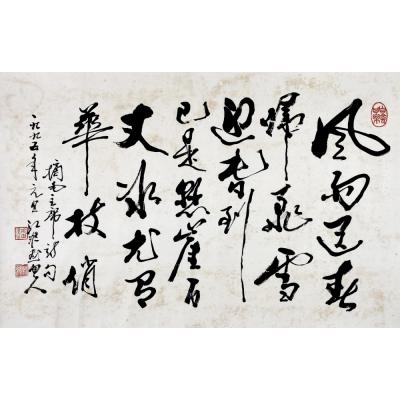 風雨送春
歸飛雪
迎春到
已是懸崖百
丈冰尤有
華枝俏
摘毛主席詩句
一九九五年元旦江